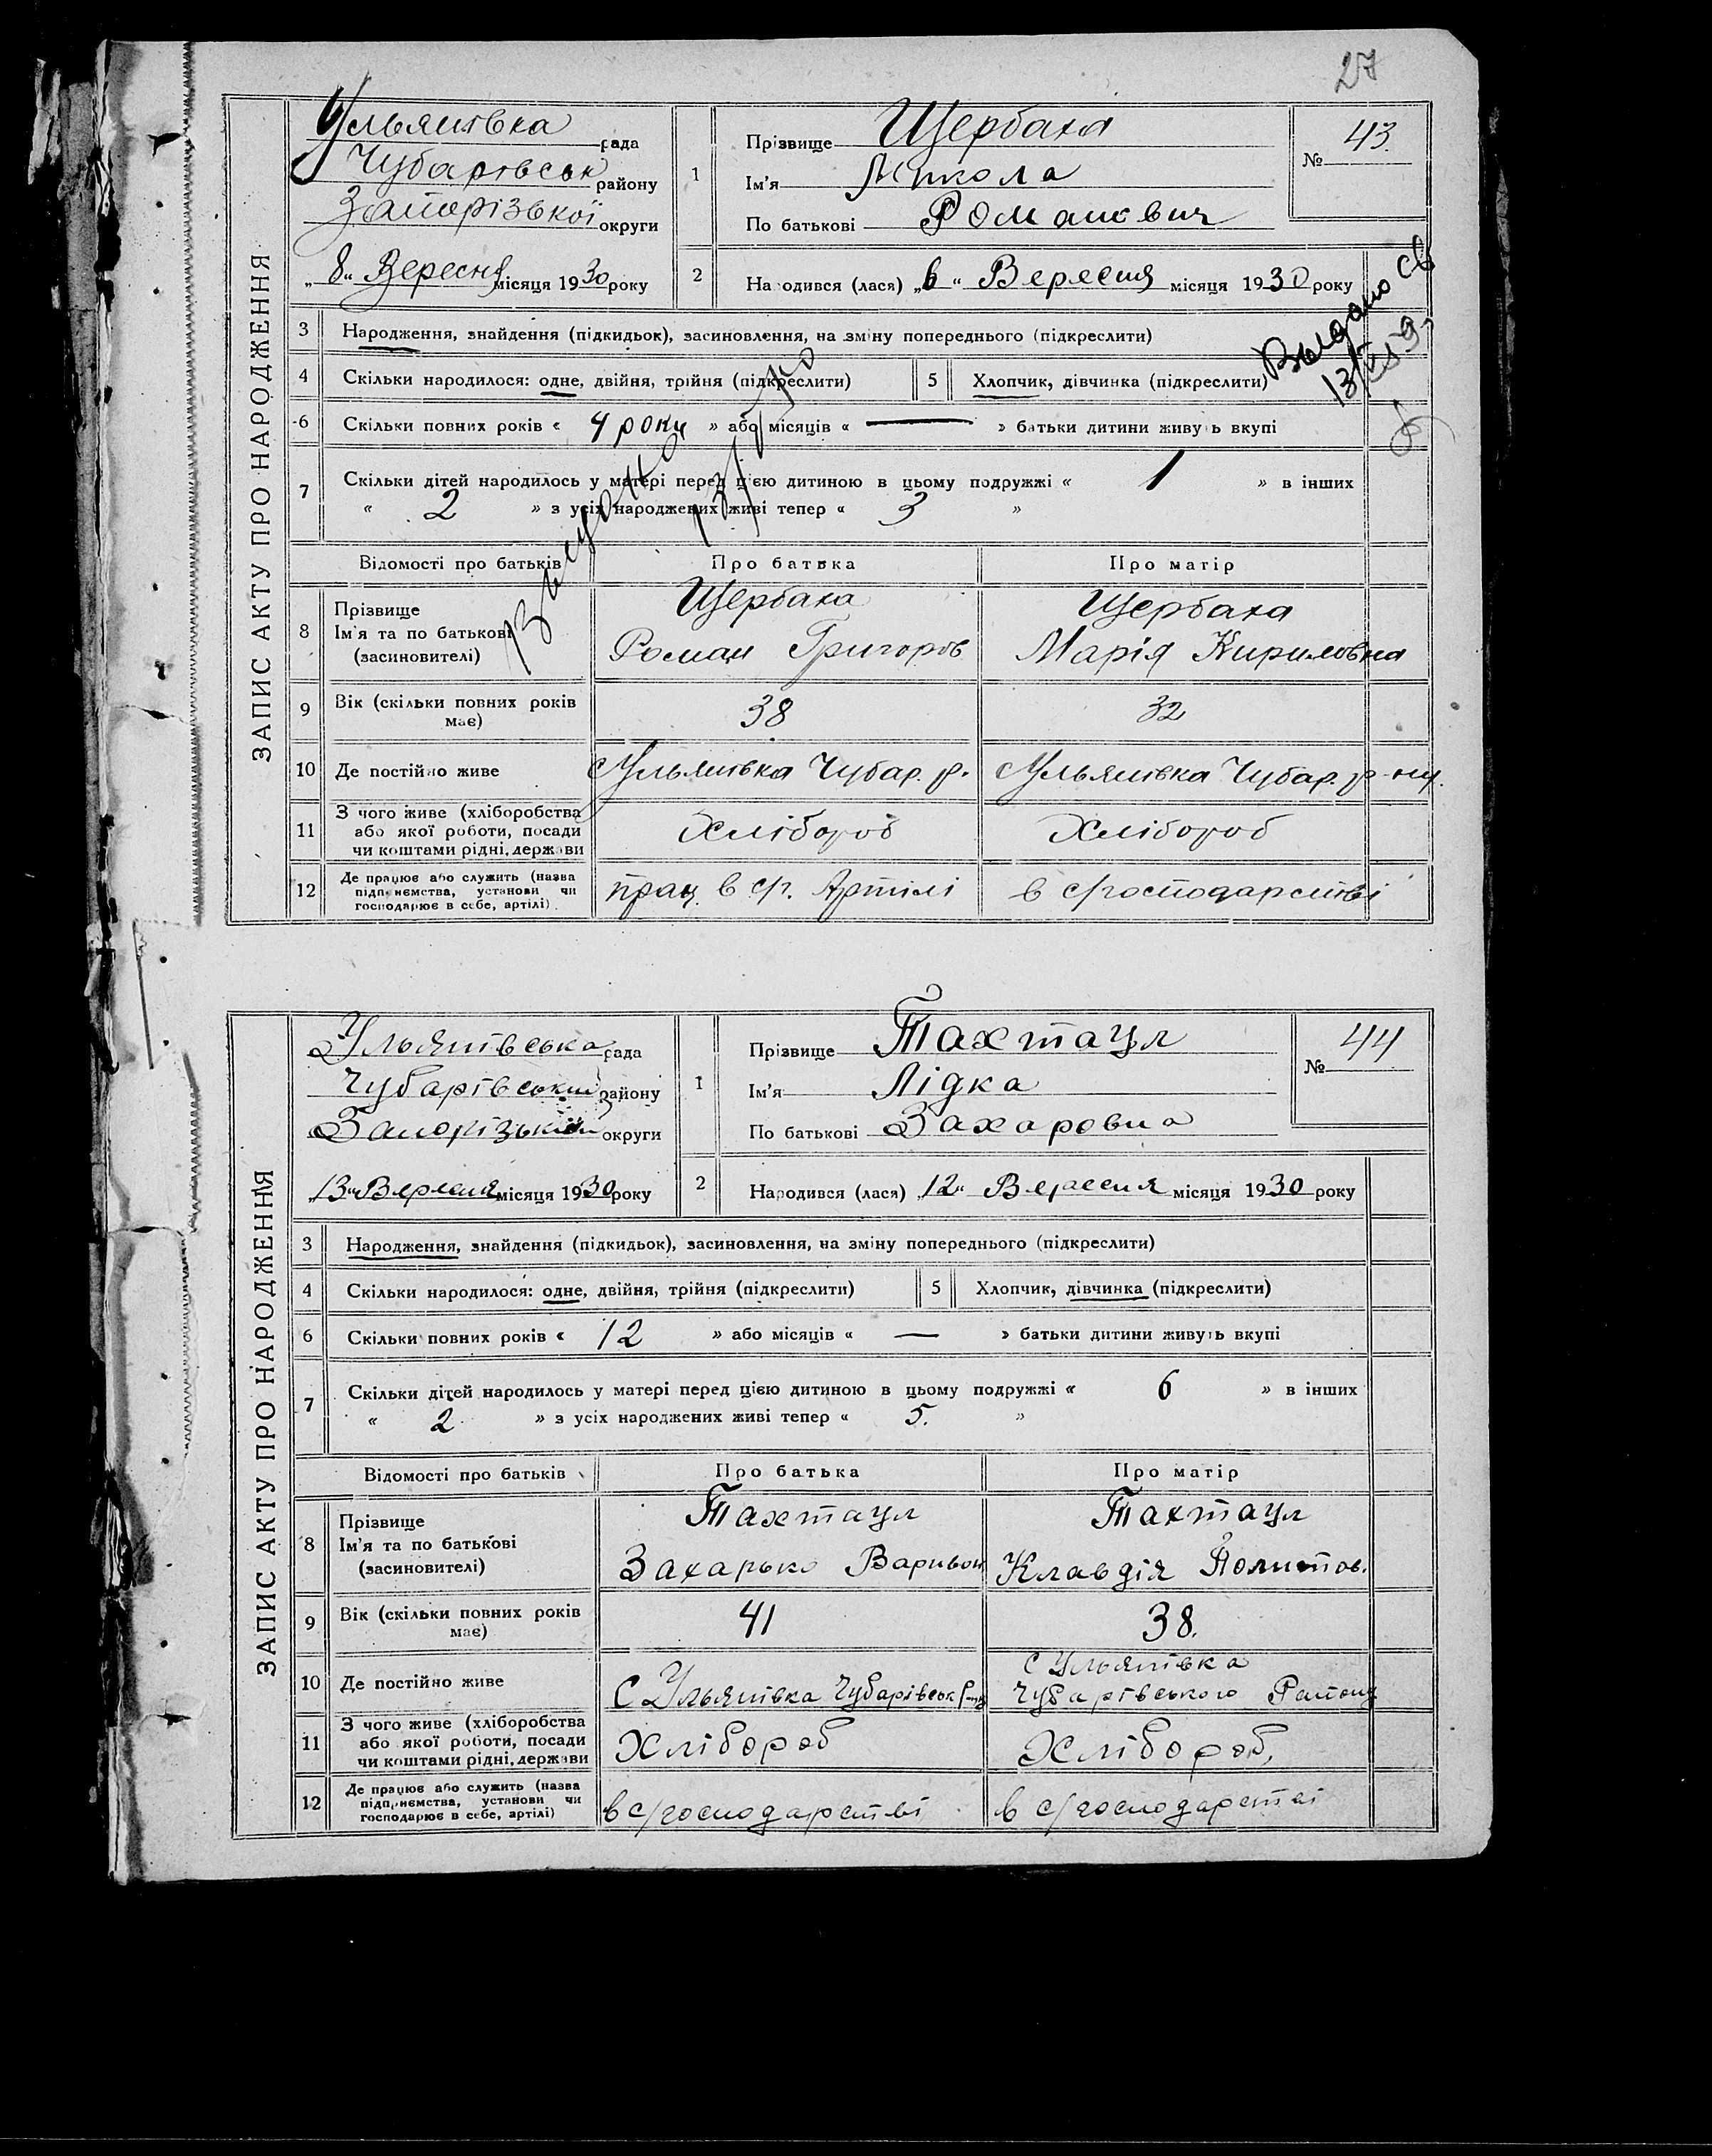 27
ЗАПИС АКТУ ПРО НАРОДЖЕННЯ
Ульянівка рада
Чубарівськ району
Запорізької округи
„8“ Вересня місяця 1930 року
1
Прізвище Щербака
Ім'я Микола
По батькові Романович
№ 43.
2
Народився (лася) „6“ Вересня місяця 1930 року
Выдано св
3 Народження, знайдення (підкидьок), засиновлення, на зміну попереднього (підкреслити)
4 Скільки народилося: одне, двійня, трійня (підкреслити) 5 Хлопчик, дівчинка (підкреслити)
6 Скільки повних років « 4 роки » або місяців « — » батьки дитини живуть вкупі
7 Скільки дітей народилось у матері перед цією дитиною в цьому подружжі « 1 » в інших
« 2 » з усіх народжених живі тепер « 3 »
Відомості про батьків Про батька Про матір
8 Прізвище Щербака Щербака
Ім'я та по батькові Роман Григоров Марія Кириловна
(засиновителі)
9 Вік (скільки повних років має) 38 32
10 Де постійно живе с Ульянівка Чубар. р. с Ульянівка Чубар. р-ну.
11 З чого живе (хліборобства або якої роботи, посади чи коштами рідні, держави Хлібороб Хлібороб
12 Де працює або служить (назва підприємства, установи чи господарює в себе, артілі) прац. в с/г. Артілі в с/господарстві
ЗАПИС АКТУ ПРО НАРОДЖЕННЯ
Ульянівська рада
Чубарівський району
округи
„13“ Вересня місяця 1930 року
1
Прізвище Тахтаул
Ім'я Лідка
По батькові Захаровна
№ 44
2
Народився (лася) „12“ Вересня місяця 1930 року
3 Народження, знайдення (підкидьок), засиновлення, на зміну попереднього (підкреслити)
4 Скільки народилося: одне, двійня, трійня (підкреслити) 5 Хлопчик, дівчинка (підкреслити)
6 Скільки повних років « 12 » або місяців « — » батьки дитини живуть вкупі
7 Скільки дітей народилось у матері перед цією дитиною в цьому подружжі « 6 » в інших
« 2 » з усіх народжених живі тепер « 5. »
Відомості про батьків Про батька Про матір
8 Прізвище Тахтаул Тахтаул
Ім'я та по батькові ЗахарькоВаривон Клавдія
(засиновителі)
9 Вік (скільки повних років має) 41 38.
10 Де постійно живе С Ульянівка Чубарівськ Р-ну с Ульянівка Чубарівського Району
11 З чого живе (хліборобства або якої роботи, посади чи коштами рідні, держави Хлібороб Хлібороб,
12 Де працює або служить (назва підприємства, установи чи господарює в себе, артілі) в с/господарстві в с/господарстві